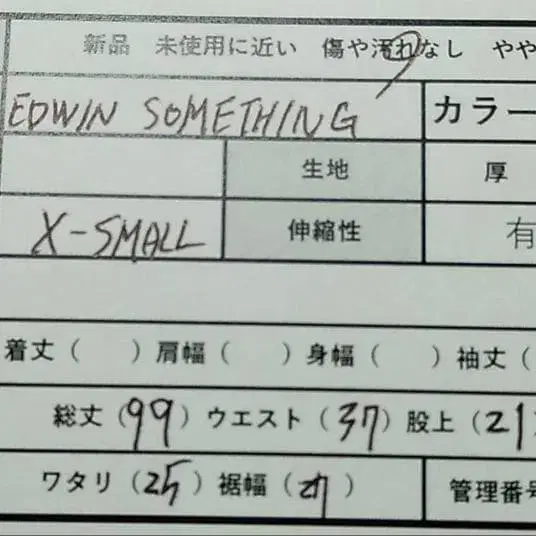 新品 未使用に近い 傷や汚れなし やや
EDWIN SOMETHING カラー
生地 厚
X-SMALL 伸縮性 有
着丈( )肩幅( )身幅( )袖丈(
総丈(99)ウエスト(37)股上(21)
ワタリ(25)裾幅( ) 管理番号